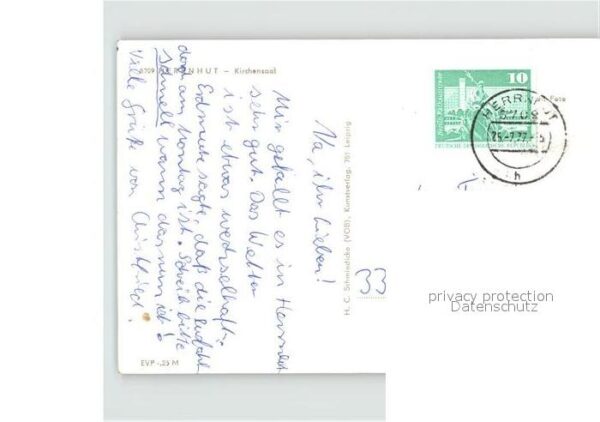 8709 HERRNHUT – Kirchensaal
Na, ihr Lieben!
Mir gefällt es in Herrnhut
sehr gut. Das Wetter
ist etwas wechselhaft.
Erdmute sagte, daß die
doch am Montag ist. Schreib bitte
schnell wann das nun ist!
Viele Grüße von
EVP -,25 M
H. C. Schmiedicke (VOB), Kunstverlag, 701 Leipzig
10
DEUTSCHE DEMOKRATISCHE REPUBLIK
HERRNHUT
8709
h
Foto
33
privacy protection
Datenschutz